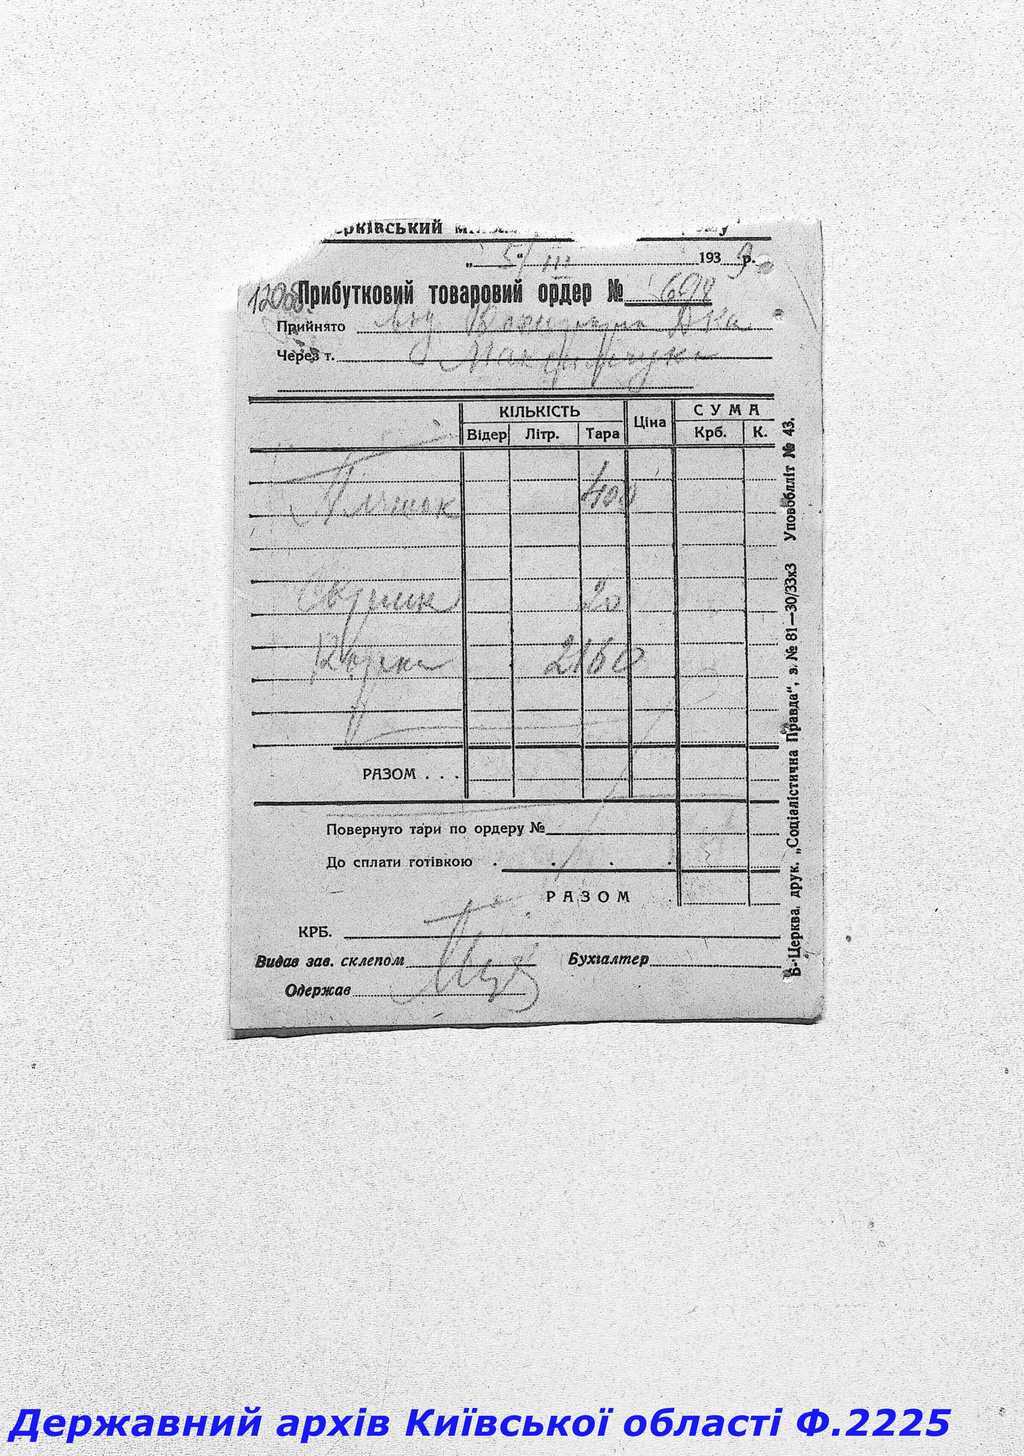 ерківський
„ 5 “ III 1939 р.
Прибутковий товаровий ордер № 698
Прийнято Від
Через т.
КІЛЬКІСТЬ Ціна СУМА
Відер Літр. Тара Крб. К.
Пляшок 400
20
2160
РАЗОМ . . .
Повернуто тари по ордеру №
До сплати готівкою . . . .
РАЗОМ
КРБ.
Видав зав. склепом Бухгалтер
Одержав
Б-Церква, друк. „Соціалістична Правда“, з. № 81—30/33х3 Уповобліт № 43.
Державний архів Київської області Ф.2225